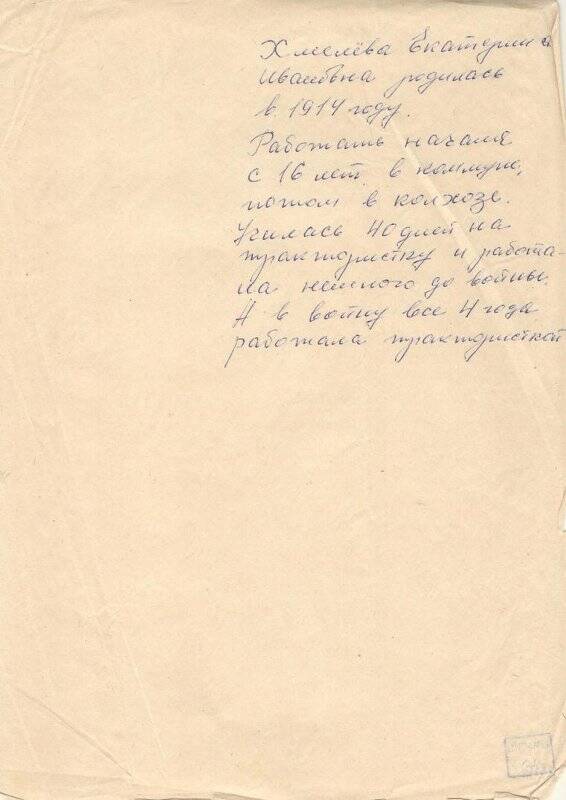 Хмелёва Екатерина
Ивановна родилась
в 1914 году.
Работать начала
с 16 лет в коммуне,
потом в колхозе.
Училась 40 дней на
трактористку и работа-
ла немного до войны.
А в войну все 4 года
работала трактористкой